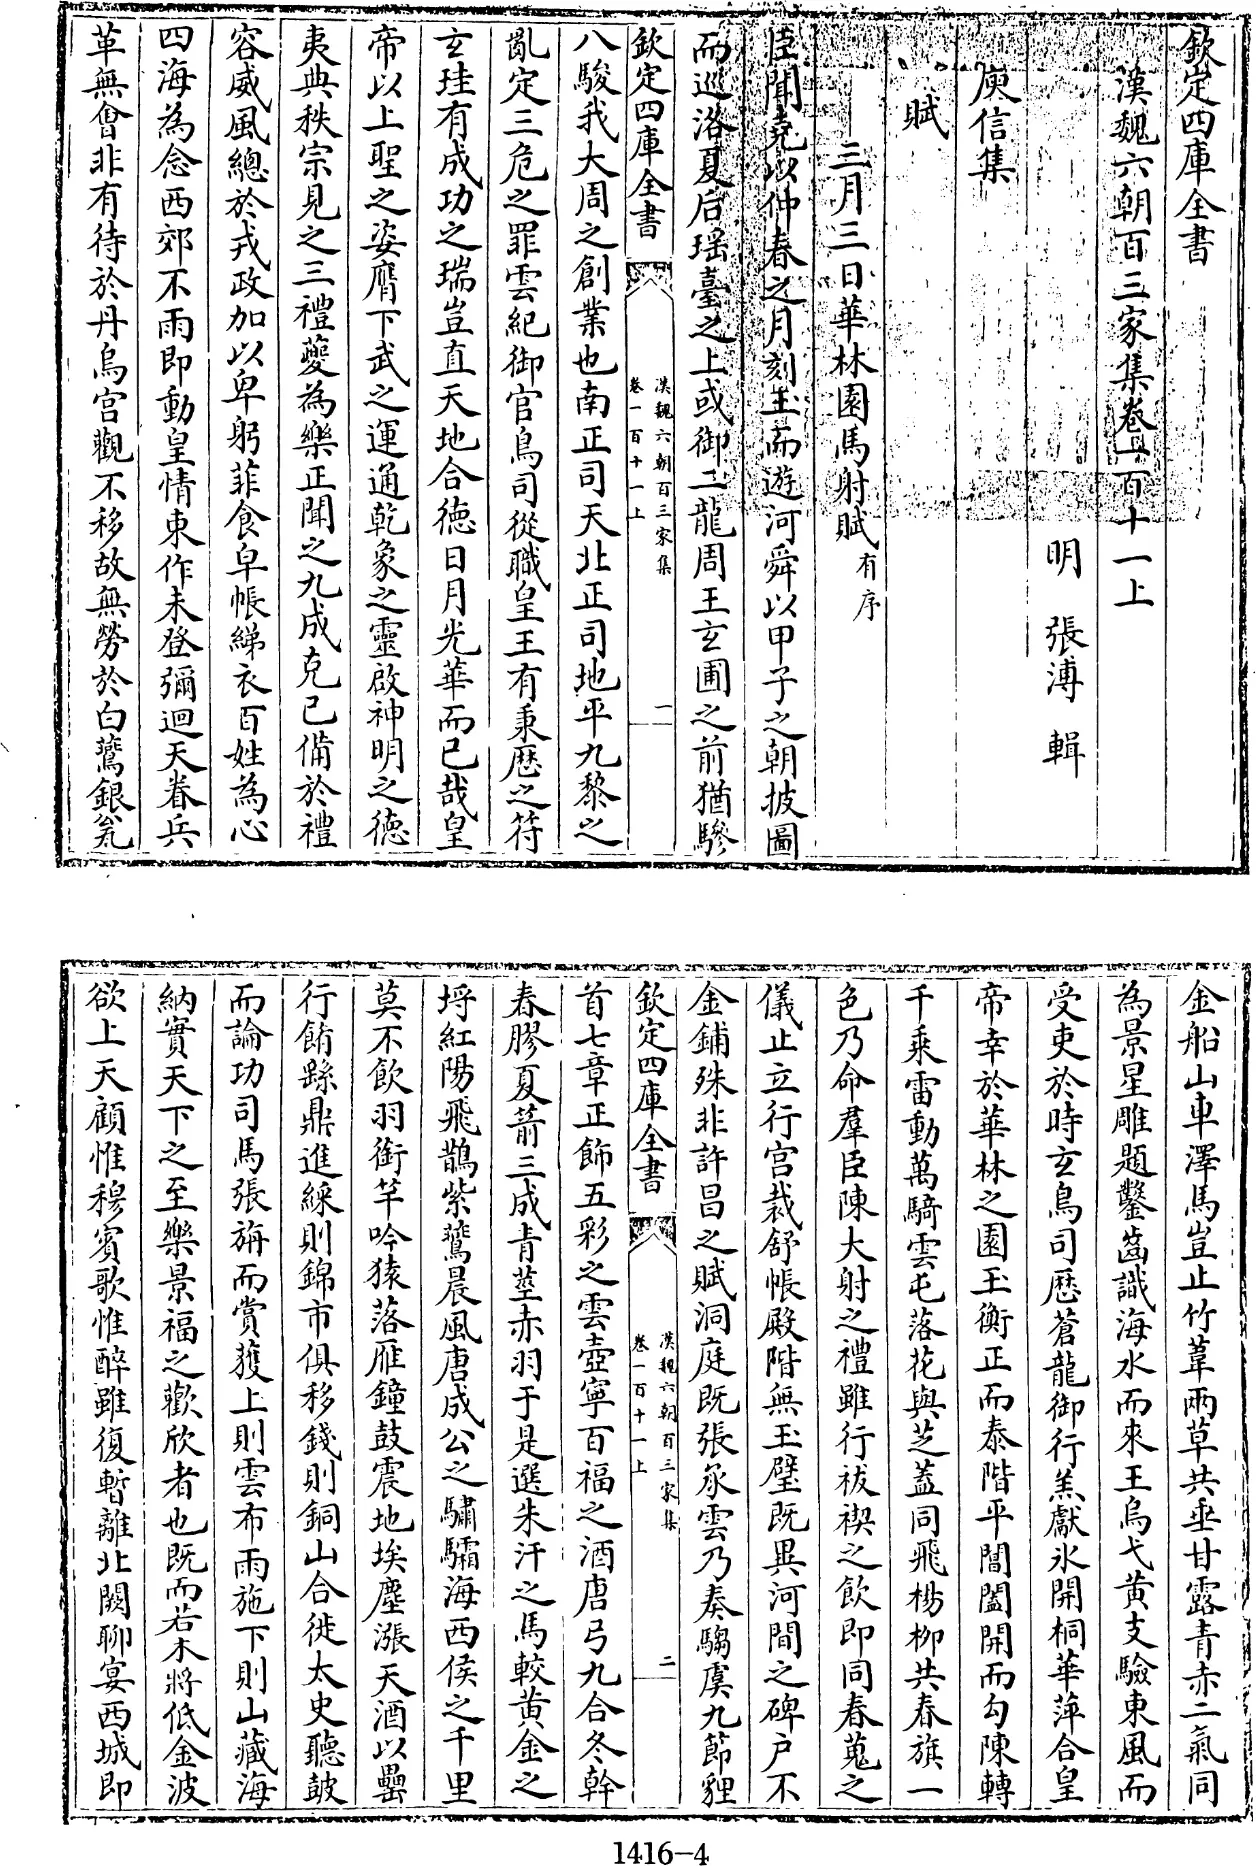 欽定四庫全書
漢魏六朝百三家集卷一百十一上
明 張溥 輯
庾信集
賦
三月三日華林園馬射賦有序
臣聞堯以仲春之月刻玉而遊河舜以甲子之朝披圖
而巡洛夏后瑶臺之上或御二龍周王玄圃之前猶驂
欽定四庫全書
漢魏六朝百三家集
卷一百十一上
一
八駿我大周之創業也南正司天北正司地平九黎之
亂定三危之罪雲紀御官鳥司從職皇王有秉歷之符
玄珪有成功之瑞豈直天地合徳日月光華而已哉皇
帝以上聖之姿膺下武之運通乾象之靈啟神明之徳
夷典秩宗見之三禮夔為樂正聞之九成克己備於禮
容威風總於戎政加以卑躬菲食皁帳綈衣百姓為心
四海為念西郊不雨即動皇情東作未登彌迴天眷兵
革無㑹非有待於丹烏宫觀不移故無勞於白鷰銀瓮
金船山車澤馬豈止竹葦兩草共垂甘露青赤二氣同
為景星雕題鑿齒識海水而來王烏弋黄支驗東風而
受吏於時玄鳥司歴蒼龍御行羔獻氷開桐華萍合皇
帝幸於華林之園玉衡正而泰階平閶闔開而勾陳轉
千乘雷動萬騎雲屯落花與芝蓋同飛楊柳共春旗一
色乃命羣臣陳大射之禮雖行祓禊之飲即同春蒐之
儀止立行宫裁舒帳殿階無玉璧既異河間之碑户不
金鋪殊非許昌之賦洞庭既張承雲乃奏騶虞九節貍
欽定四庫全書
漢魏六朝百三家集
卷一百十一上
二
首七章正飾五彩之雲壺寧百福之酒唐弓九合冬幹
春膠夏箭三成青莖赤羽于是選朱汗之馬較黄金之
埒紅陽飛鵲紫鷰晨風唐成公之驌驦海西侯之千里
莫不飲羽銜竿吟猿落雁鐘鼓震地埃塵漲天酒以罍
行餚繇鼎進綵則錦市俱移錢則銅山合徙太史聽鼓
而論功司馬張旃而賞獲上則雲布雨施下則山藏海
納實天下之至樂景福之歡欣者也既而若木將低金波
欲上天顧惟穆賓歌惟醉雖復暫離北闕聊宴西城即
1416-4